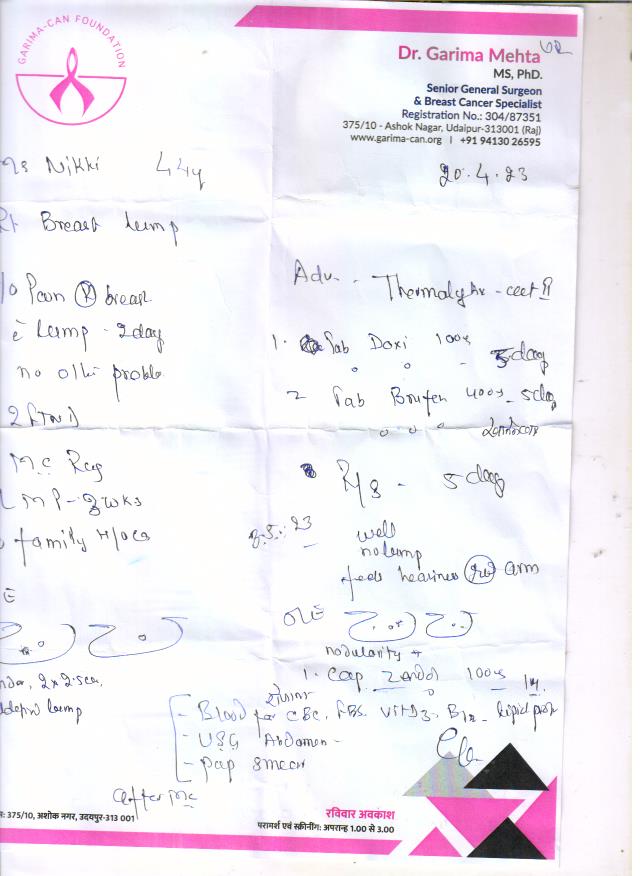 GARIMA-CAN FOUNDATION
Dr. Garima Mehta
MS, PhD.
Senior General Surgeon
& Breast Cancer Specialist
Registration No.: 304/87351
375/10 - Ashok Nagar, Udaipur-313001 (Raj)
www.garima-can.org | +91 94130 26595
Nikki 44y
20.4.23
Rt Breast lump
Pain (R) breast
c̄ lump - 2day
no other problem
M.C Reg
LMP - 3wks
family H/o Ca
Adv -
1. Tab Doxi 100mg
5day
2 Tab Brufen 400mg - 5day
R/s - 5day
23
well
no lump
feels heaviness arm
O/E
nodularity +
1. Cap 100mg 1m
2x2.5cm
lump
- Blood for CBC, FBS, Vit D3, B12, lipid prof
- USG Abdomen -
- Pap smear
after MC
375/10, अशोक नगर, उदयपुर-313 001
रविवार अवकाश
परामर्श एवं स्क्रीनिंग: अपरान्ह 1.00 से 3.00